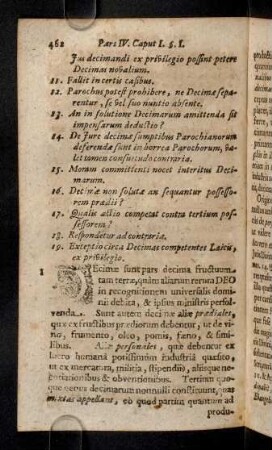 462 Pars IV. Caput I. §. I.
Jus decimandi ex privilegio possint petere
Decimas novalium.
11. Fallit in certis casibus.
12. Parochus potest prohibere, ne Decimæ sepa-
rentur, se vel suo nuntio absente.
13. An in solutione Decimarum amittenda sit
impensarum deductio?
14. De Jure decimæ sumptibus Parochianorum
deferendæ sunt in horrea Parochorum, va-
let tamen consuetudo contraria.
15. Moram committenti nocet interitus Deci-
marum.
16. Decimæ non solutæ an sequantur possesso-
rem prædii?
17. Qualis actio competat contra tertium pos-
sessorem?
18. Respondetur ad contraria.
19. Exceptio circa Decimas competentes Laicis,
ex privilegio.
1 DEcimæ sunt pars decima fructuum
tam terræ, quàm aliarum rerum DEO
in recognitionem universalis domi-
nii debita, & ipsius ministris persol-
venda. Sunt autem decimæ aliæ prædiales,
quæ ex fructibus prædiorum debentur, ut de vi-
no, frumento, oleo, pomis, fæno, & simi-
libus. Aliæ personales, quæ debentur ex
lucro humanâ potissimùm industriâ quæsito,
ut ex mercatura, militia, stipendii, aliisque ne-
gotiationibus & obventionibus. Tertium quo-
que genus decimarum nonnulli constituunt, quas
mixtas appellant, eò quod partim quantum ad
produ-